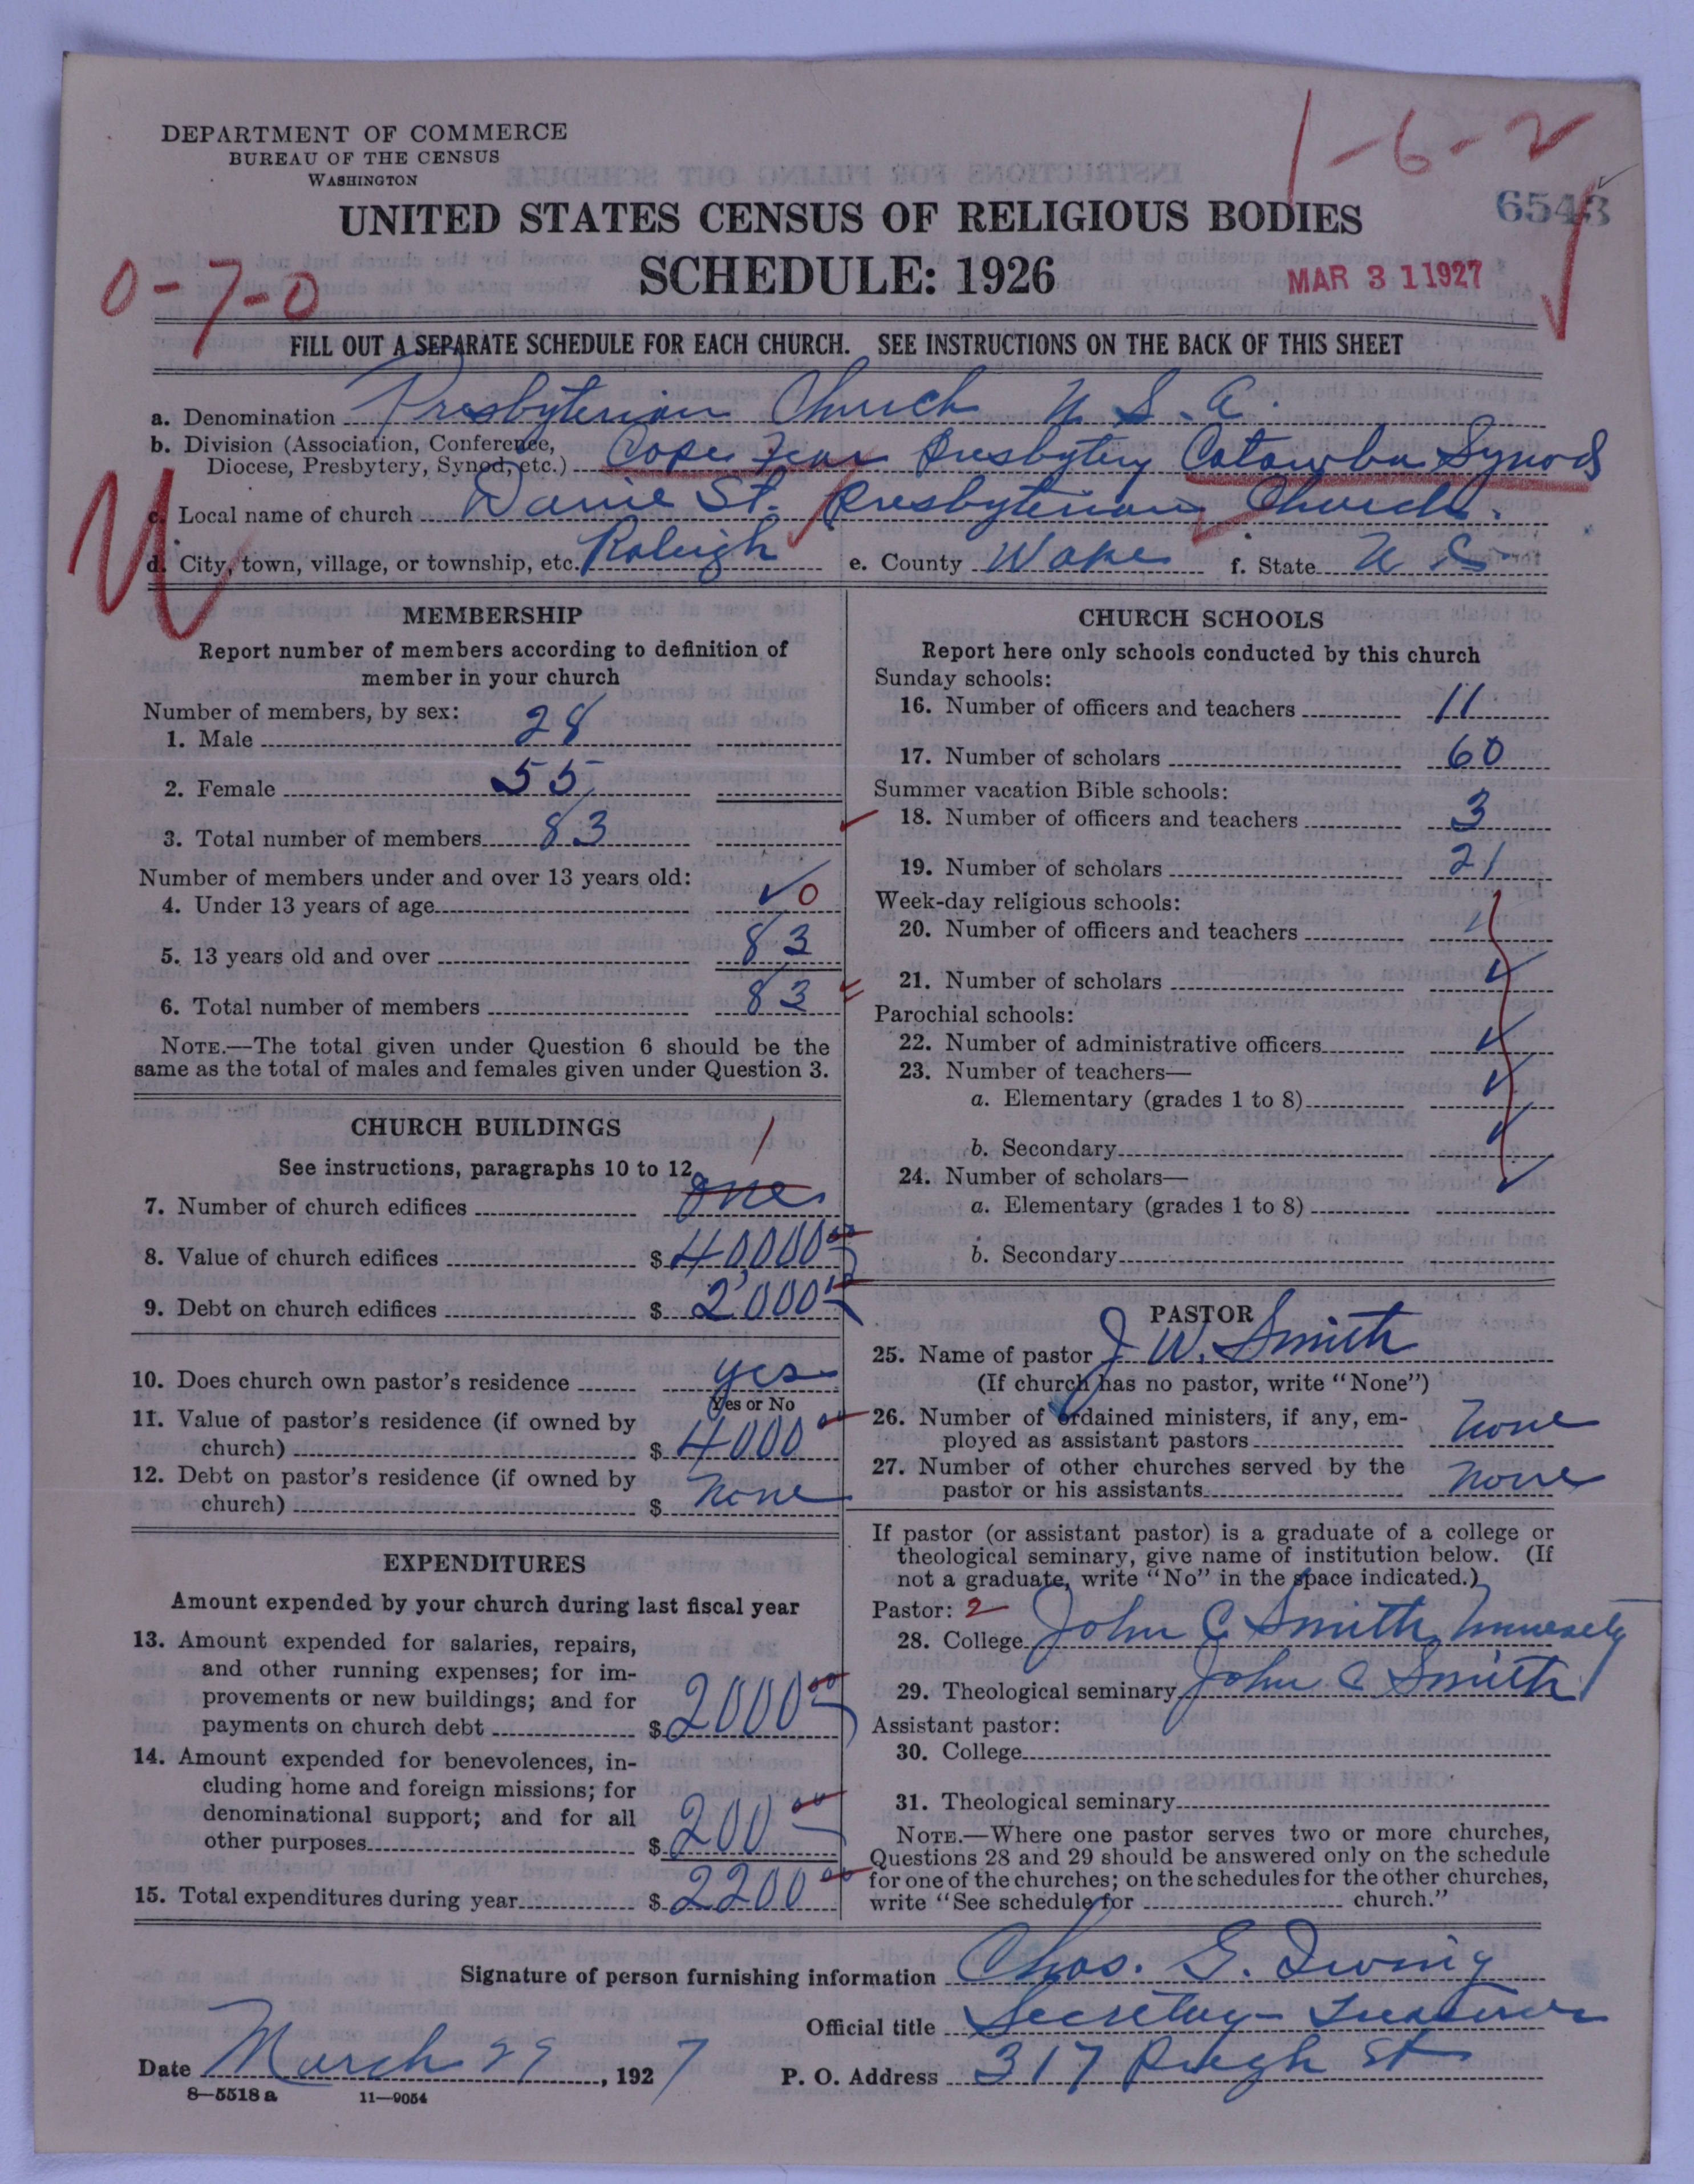 DEPARTMENT OF COMMERCE
BUREAU OF THE CENSUS
WASHINGTON
1-6-2
6543
UNITED STATES CENSUS OF RELIGIOUS BODIES
0-7-0
SCHEDULE: 1926
MAR 31 1927
FILL OUT A SEPARATE SCHEDULE FOR EACH CHURCH. SEE INSTRUCTIONS ON THE BACK OF THIS SHEET
a. Denomination Presbyterian Church U S. A.
b. Division (Association, Conference,
Diocese, Presbytery, Synod, etc.) Cape Fear Presbytery Catawba Synod
c. Local name of church Davie St. Presbyterian Church.
d. City, town, village, or township, etc. Raleigh e. County Wake f. State N C
MEMBERSHIP
Report number of members according to definition of
member in your church
Number of members, by sex:
1. Male 28
2. Female 55
3. Total number of members 83
Number of members under and over 13 years old:
4. Under 13 years of age 0
5. 13 years old and over 83
6. Total number of members 83
NOTE.—The total given under Question 6 should be the
same as the total of males and females given under Question 3.
CHURCH BUILDINGS
See instructions, paragraphs 10 to 12
1
7. Number of church edifices one
8. Value of church edifices $ 40,000 00
9. Debt on church edifices $ 2,000 00
10. Does church own pastor's residence yes
Yes or No
11. Value of pastor's residence (if owned by
church) $ 4000 00
12. Debt on pastor's residence (if owned by
church) $ none
EXPENDITURES
Amount expended by your church during last fiscal year
13. Amount expended for salaries, repairs,
and other running expenses; for im-
provements or new buildings; and for
payments on church debt $ 2000 00
14. Amount expended for benevolences, in-
cluding home and foreign missions; for
denominational support; and for all
other purposes $ 200 00
15. Total expenditures during year $ 2200 00
CHURCH SCHOOLS
Report here only schools conducted by this church
Sunday schools:
16. Number of officers and teachers 11
17. Number of scholars 60
Summer vacation Bible schools:
18. Number of officers and teachers 3
19. Number of scholars 21
Week-day religious schools:
20. Number of officers and teachers
21. Number of scholars
Parochial schools:
22. Number of administrative officers
23. Number of teachers—
a. Elementary (grades 1 to 8)
b. Secondary
24. Number of scholars—
a. Elementary (grades 1 to 8)
b. Secondary
PASTOR
25. Name of pastor J. W. Smith
(If church has no pastor, write "None")
26. Number of ordained ministers, if any, em-
ployed as assistant pastors none
27. Number of other churches served by the
pastor or his assistants none
If pastor (or assistant pastor) is a graduate of a college or
theological seminary, give name of institution below. (If
not a graduate, write "No" in the space indicated.)
Pastor: 2
28. College John C Smith University
29. Theological seminary John C Smith
Assistant pastor:
30. College
31. Theological seminary
NOTE.—Where one pastor serves two or more churches,
Questions 28 and 29 should be answered only on the schedule
for one of the churches; on the schedules for the other churches,
write "See schedule for church."
Signature of person furnishing information Chas. G. Irving
Official title Secretary-Treasurer
Date March 29, 1927 P. O. Address 317 St
8—5518a 11—9054